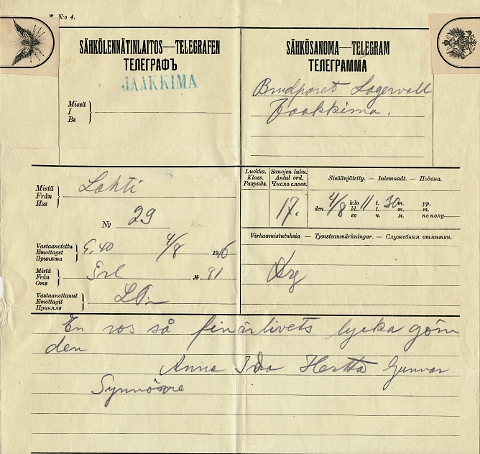 K:o 4.
SÄHKÖLENNÄTINLAITOS—TELEGRAFEN
ТЕЛЕГРАФЪ
JAAKKIMA
Missä
I
Въ
SÄHKÖSANOMA—TELEGRAM
ТЕЛЕГРАММА
Brudparet Lagervall
Jaakkima.
Mistä
Från
Изъ
Lahti
№ 29
Vastaanotettu
Emottaget
Принята
6.40 4/8 1916
Mistä
Från
Отъ
Srl № 81
Vastaanottanut
Emottagit
Принялъ
Luokka.
Klass.
Разрядъ.
Sanojen luku.
Antal ord.
Число словъ.
17.
Sisäänjätetty.—Inlemnadt.—Подана.
den 4/8 k:lo 11 t. 30 m.
Virkamuistutuksia—Tjensteanmärkningar.—Служебныя отмѣтки.
En ros så fin är livets lycka göm
den
Anna Ida Hertta Gunnar
Synnöve